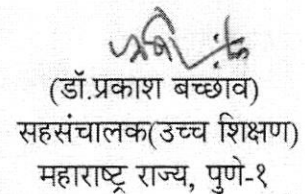 (डॉ.प्रकाश बच्छाव)
सहसंचालक(उच्च शिक्षण)
महाराष्ट्र राज्य, पुणे-१